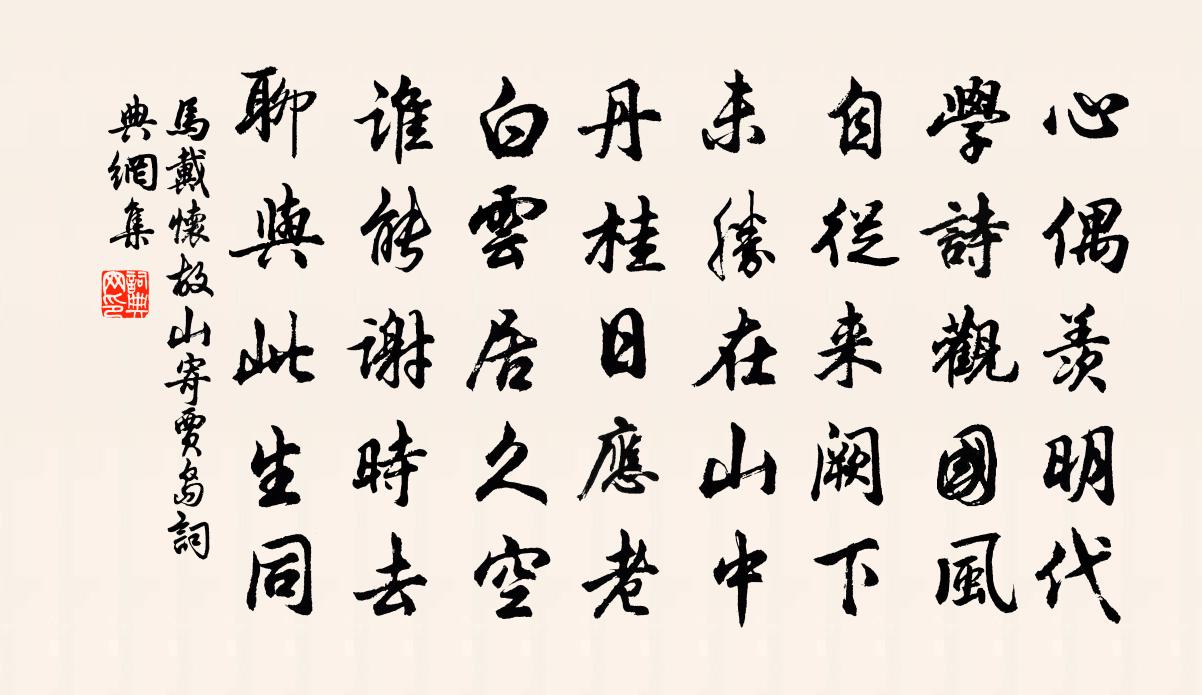 心偶羨明代
學詩觀國風
自從来闕下
未勝在山中
丹桂日應老
白雲居久空
誰能謝時去
聊與此生同
馬戴懷故山寄賈島詞
典網集
詞典
网印